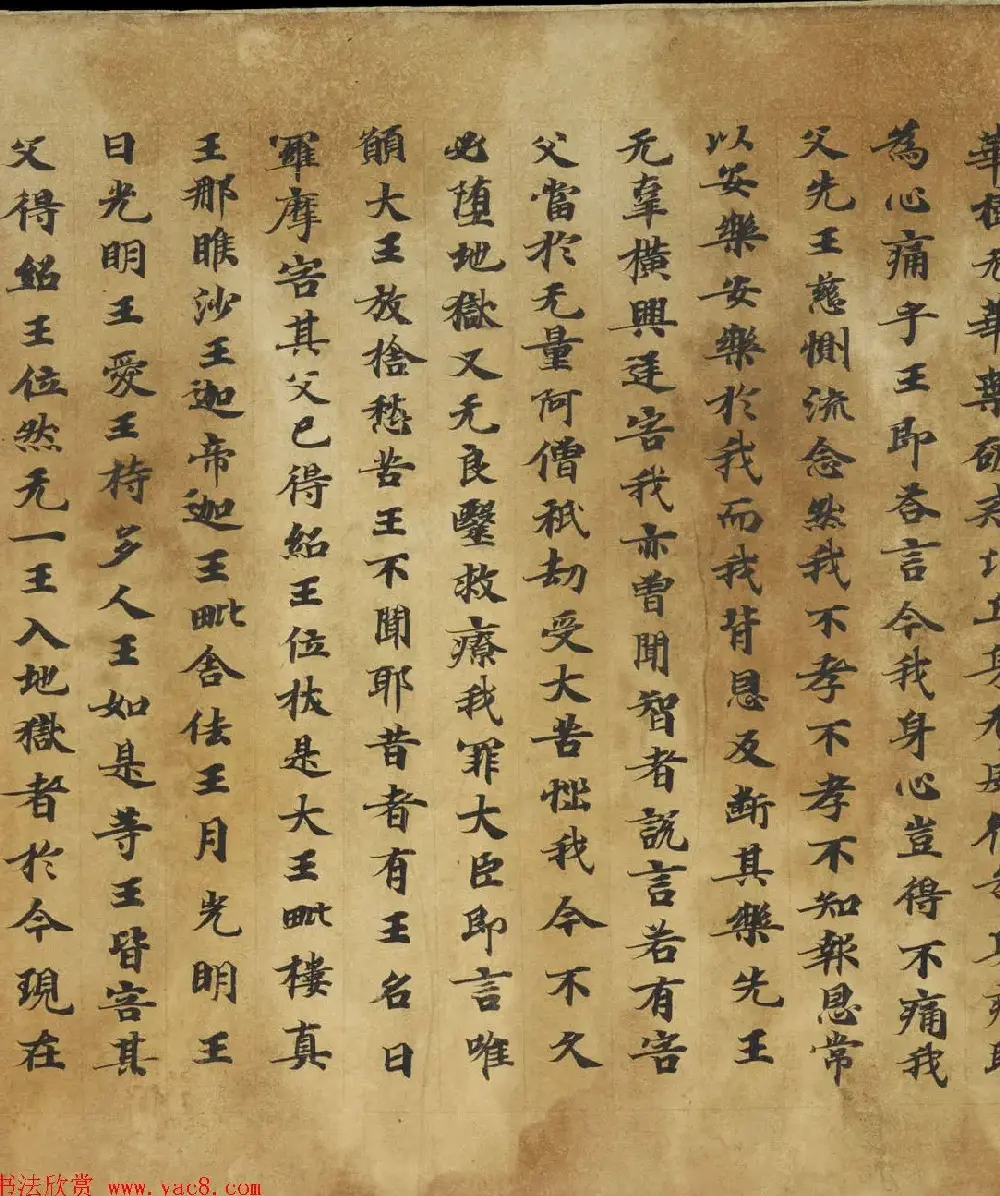 為心痛乎王即荅言今我身心豈得不痛我
父先王慈惻流念然我不孝不孝不知報恩常
以安樂安樂於我而我背恩及断其樂先王
无辜横興逆害我亦曽聞智者說言若有害
父當於无量阿僧祇劫受大苦惱我今不久
必堕地獄又无良毉救療我罪大臣即言唯
願大王放捨愁苦王不聞耶昔者有王名曰
羅摩害其父已得紹王位秡是大王毗樓真
王那睺沙王迦帝迦王毗舍佉王月光明王
日光明王愛王持多人王如是等王皆害其
父得紹王位然无一王入地獄者於今現在
书法欣赏 www.yac8.com